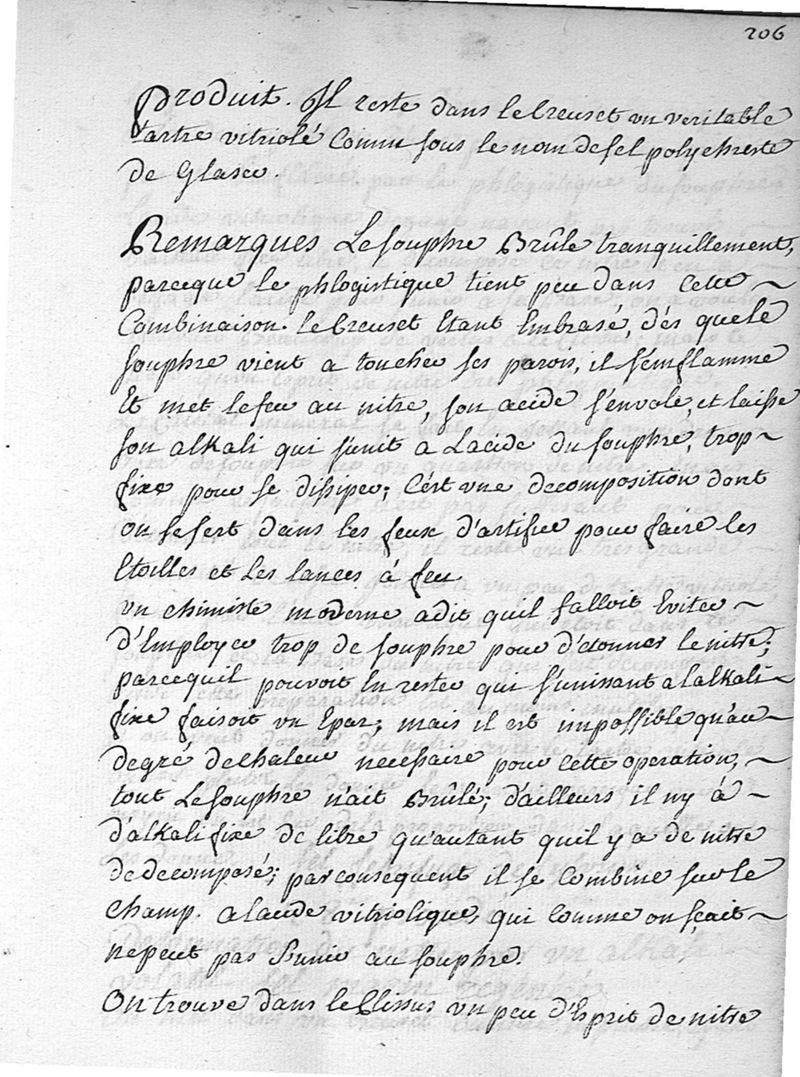 206
Produit. Il reste dans le Creuset un veritable
tartre vitriolé Connu sous le nom de sel polychreste
de Glaser.
Remarques Le souphre Brûle tranquillement,
parceque le phlogistique tient peu dans cette ~
Combinaison. le Creuset Etant Embrasé, dés que le
souphre vient a toucher ses parois, il s'enflamme
Et met le feu au nitre, son acide s'envole, et laisse
son alkali qui s'unit a Lacide du souphre, trop ~
fixe pour se dissiper; C'est une decomposition dont
on se sert dans les feux d'artifice pour faire les
Etoilles et Les lances à feu.
un chimiste moderne a dit quil falloit Eviter ~
d'Employer trop de souphre pour d'étonner le nitre;
parcequil pouvoit En rester qui s'unissant a lalkali ~
fixe faisoit un Epar; mais il est impossible qu'au ~
degré de chaleur necessaire pour cette operation, ~
tout Le souphre n'ait Brûlé; d'ailleurs il ny à ~
d'alkali fixe de libre qu'autant quil y a de nitre
de decomposé; par consequent il se Combine sur le
champ. a lacide vitriolique, qui comme on sçait ~
ne peut pas S'unir au souphre.
On trouve dans le Clissus un peu d'Esprit de nitre